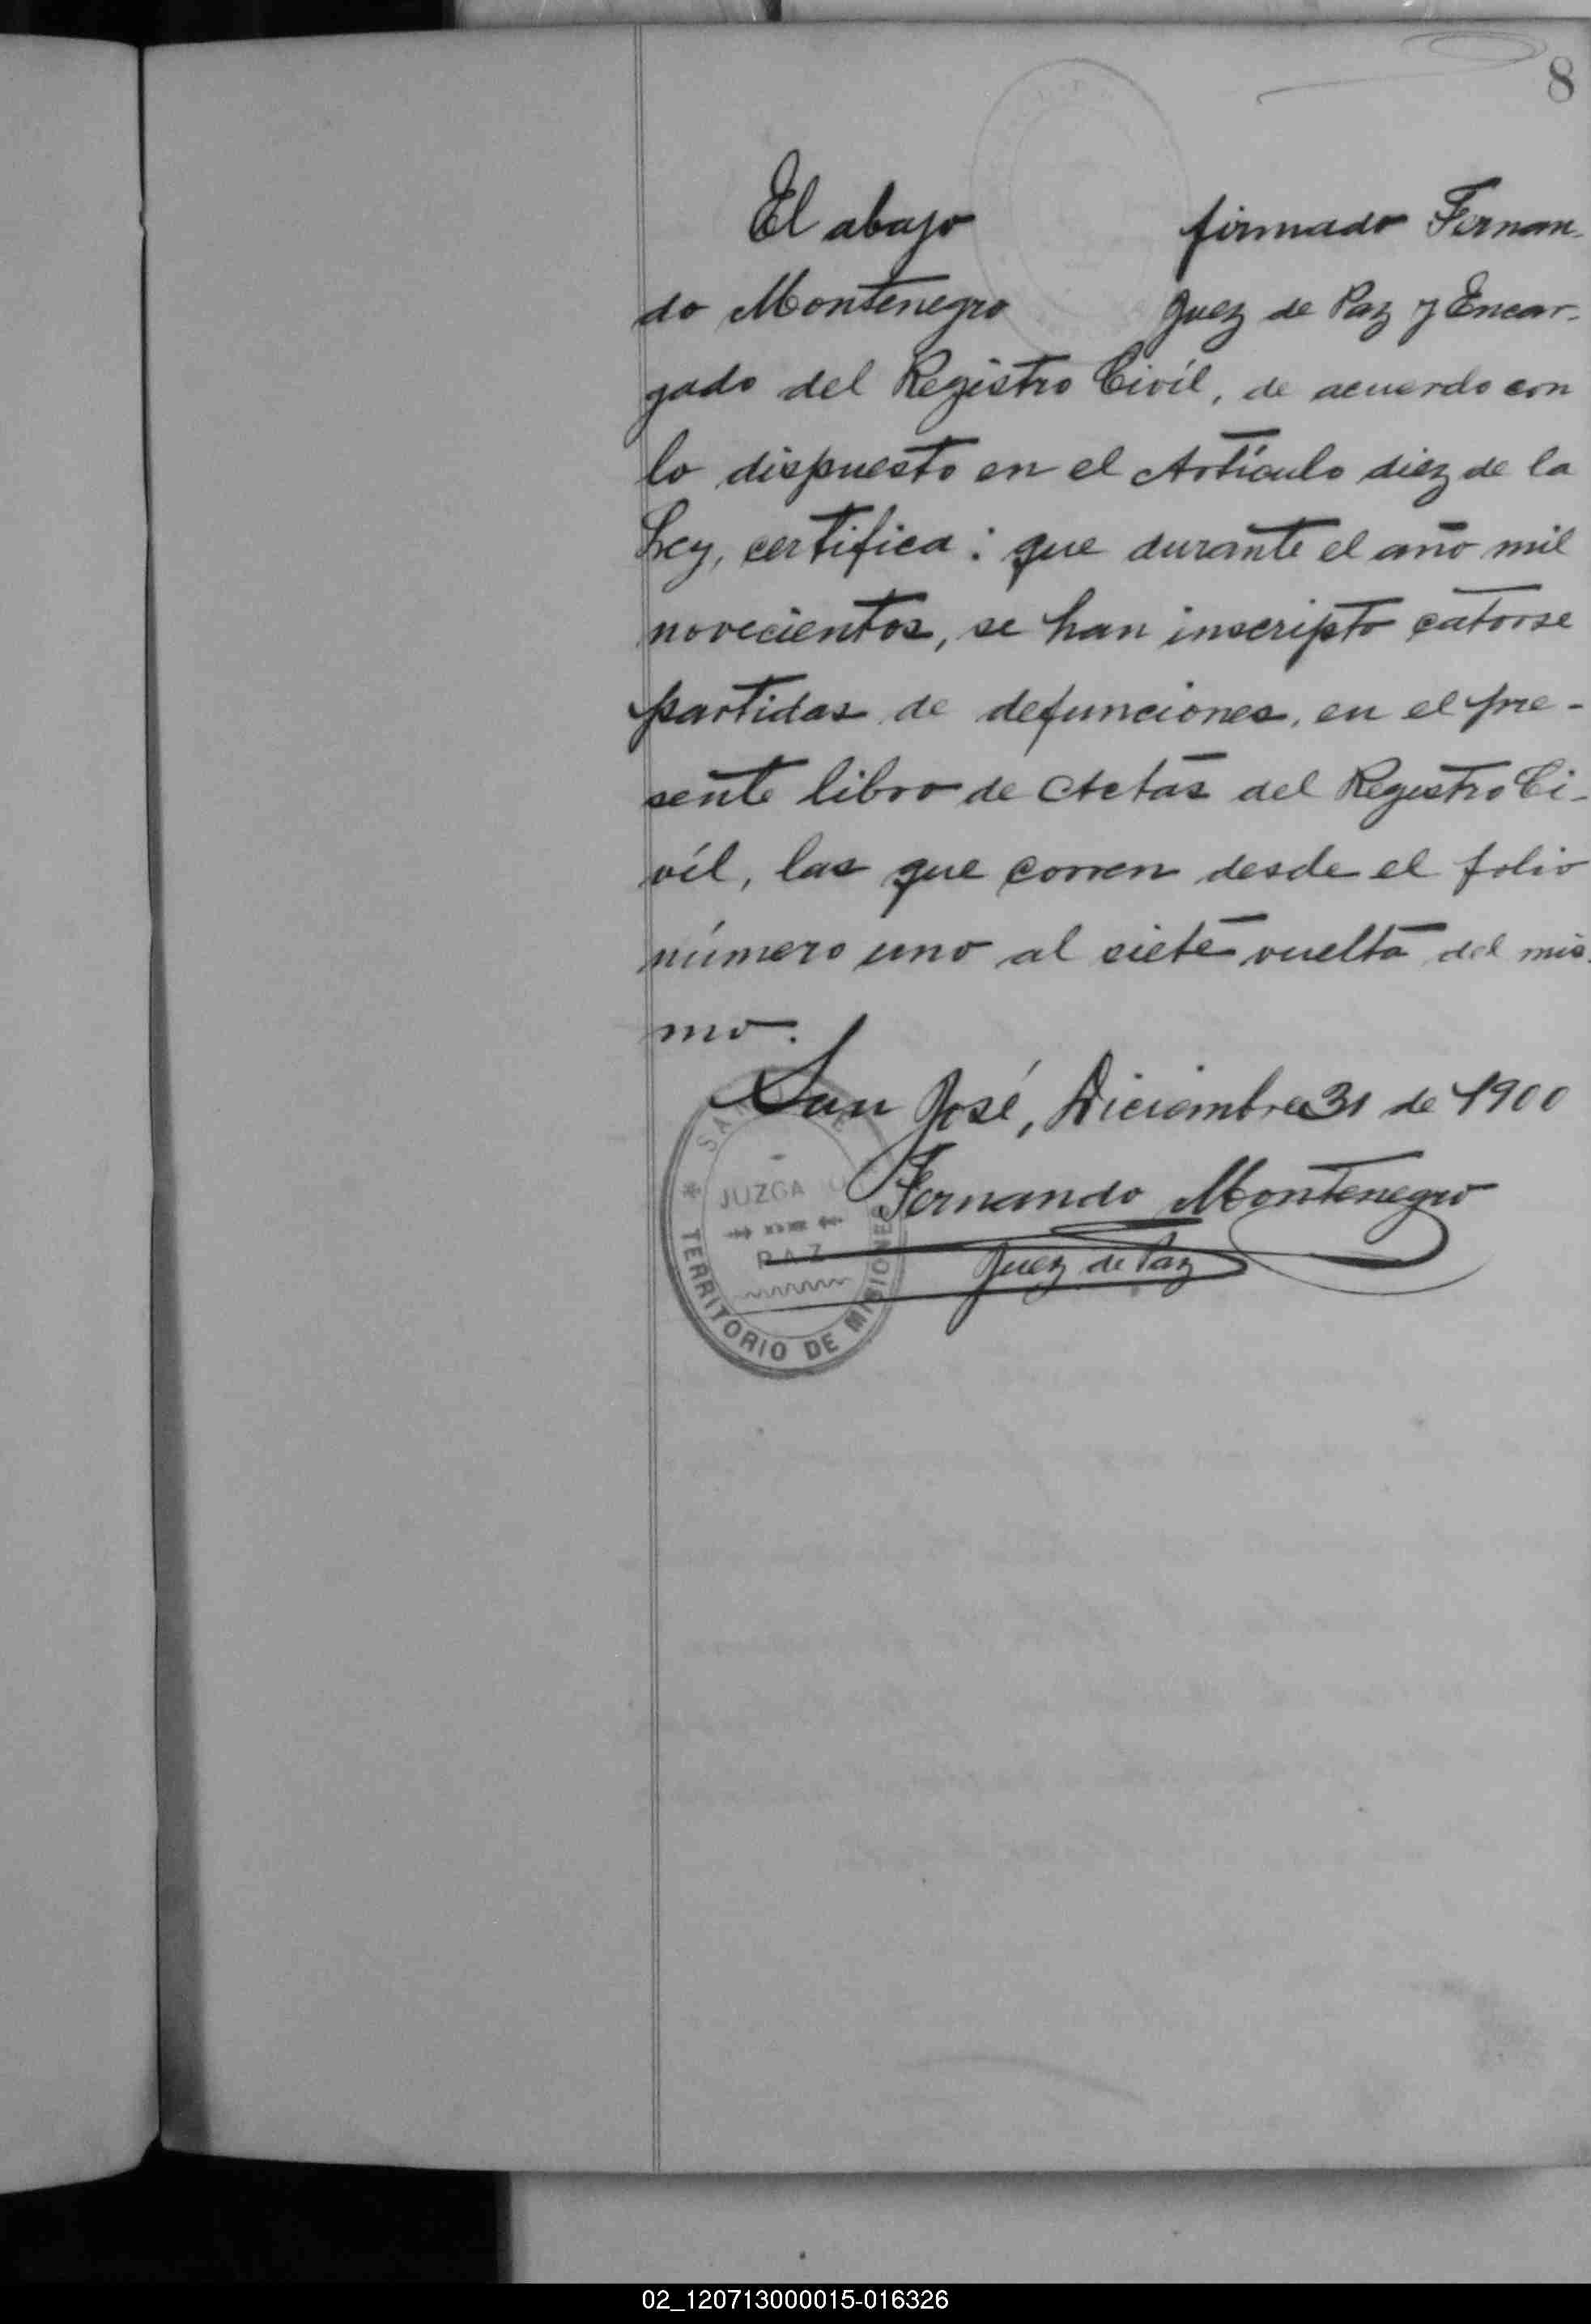 8
El abajo firmado Fernan-
do Montenegro Juez de Paz y Encar-
gado del Registro Civíl, de acuerdo con
lo dispuesto en el Artículo diez de la
Ley, certifica: que durante el año mil
novecientos, se han inscripto catorse
partidas de defunciones, en el pre-
sente libro de Actas del Registro Ci-
víl, las que corren desde el folio
número uno al siete vuelta del mis-
mo.
San José, Diciembre 31 de 1900
Fernando Montenegro
Juez de Paz
JUZGA
PAZ
TERRITORIO DE MISIONES
02_120713000015-016326